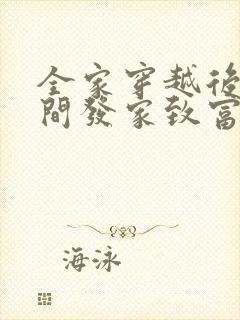 全家穿越後
間發家致富
海泳